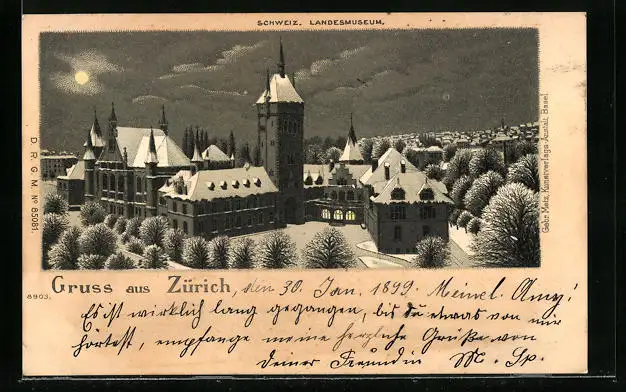 SCHWEIZ. LANDESMUSEUM.
D. R. G. M. No 85081.
Gebr. Metz, Kunstverlags-Anstalt, Basel.
8903.
Gruss aus Zürich, den 30. Jan. 1899. Meinel. Amy!
Es ist wirklich lang gegangen, bis du etwas von mir
hörtest, empfange meine herzliche Grüße von
deiner Freundin M. Sp.